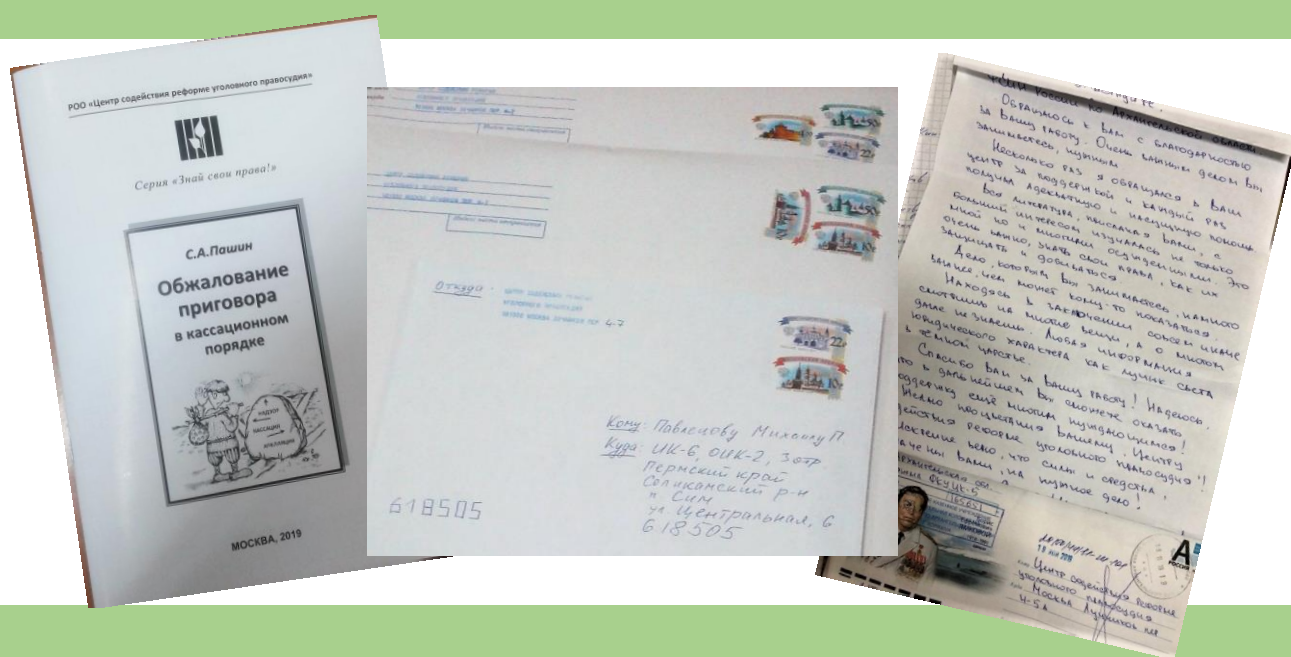 РОО «Центр содействия реформе уголовного правосудия»
Серия «Знай свои права!»
С.А.Пашин
Обжалование
приговора
в кассационном
порядке
НАДЗОР
КАССАЦИЯ
АПЕЛЛЯЦИЯ
МОСКВА, 2019
Откуда:
ЦЕНТР СОДЕЙСТВИЯ РЕФОРМЕ
УГОЛОВНОГО ПРАВОСУДИЯ
МОСКВА ЛУЧНИКОВ ПЕР 4-7
22
50
Кому: Павленову Михаилу П.
Куда: ИК-6, ОИК-2, 3 отр.
Пермский край
Соликамский р-н
п. Сим
ул. Центральная, 6
618505
618505
России по Архангельской области
Обращаюсь к Вам с благодарностью
за Вашу работу. Очень важным делом Вы
занимаетесь, нужным
Несколько раз я обращался в Ваш
центр за поддержкой и каждый раз
получил адекватную и насущную помощь
Вся литература, присланая Вами, с
большим интересом изучалась не только
мной но и многими осужденными. Это
очень важно, знать свои права, как их
защищать и добиваться
Дело, которым Вы занимаетесь, намного
важнее, чем может кому-то показаться.
Находясь в заключении совсем иначе
смотришь на многие вещи, а о многом
даже не знаешь. Любая информация
юридического характера как лучик света
в тёмном царстве.
Спасибо Вам за Вашу работу! Надеюсь,
в дальнейшем Вы сможете оказать
поддержку ещё многим нуждающимся!
Желаю процветания Вашему "Центру
содействия реформе уголовного правосудия"!
что силы и средства,
Вами, на нужное дело!
Архангельская обл.
ФКУ ИК-5
165651
А
РОССИЯ
Центр содействия реформе
уголовного правосудия
Москва Лучников пер
4-5А